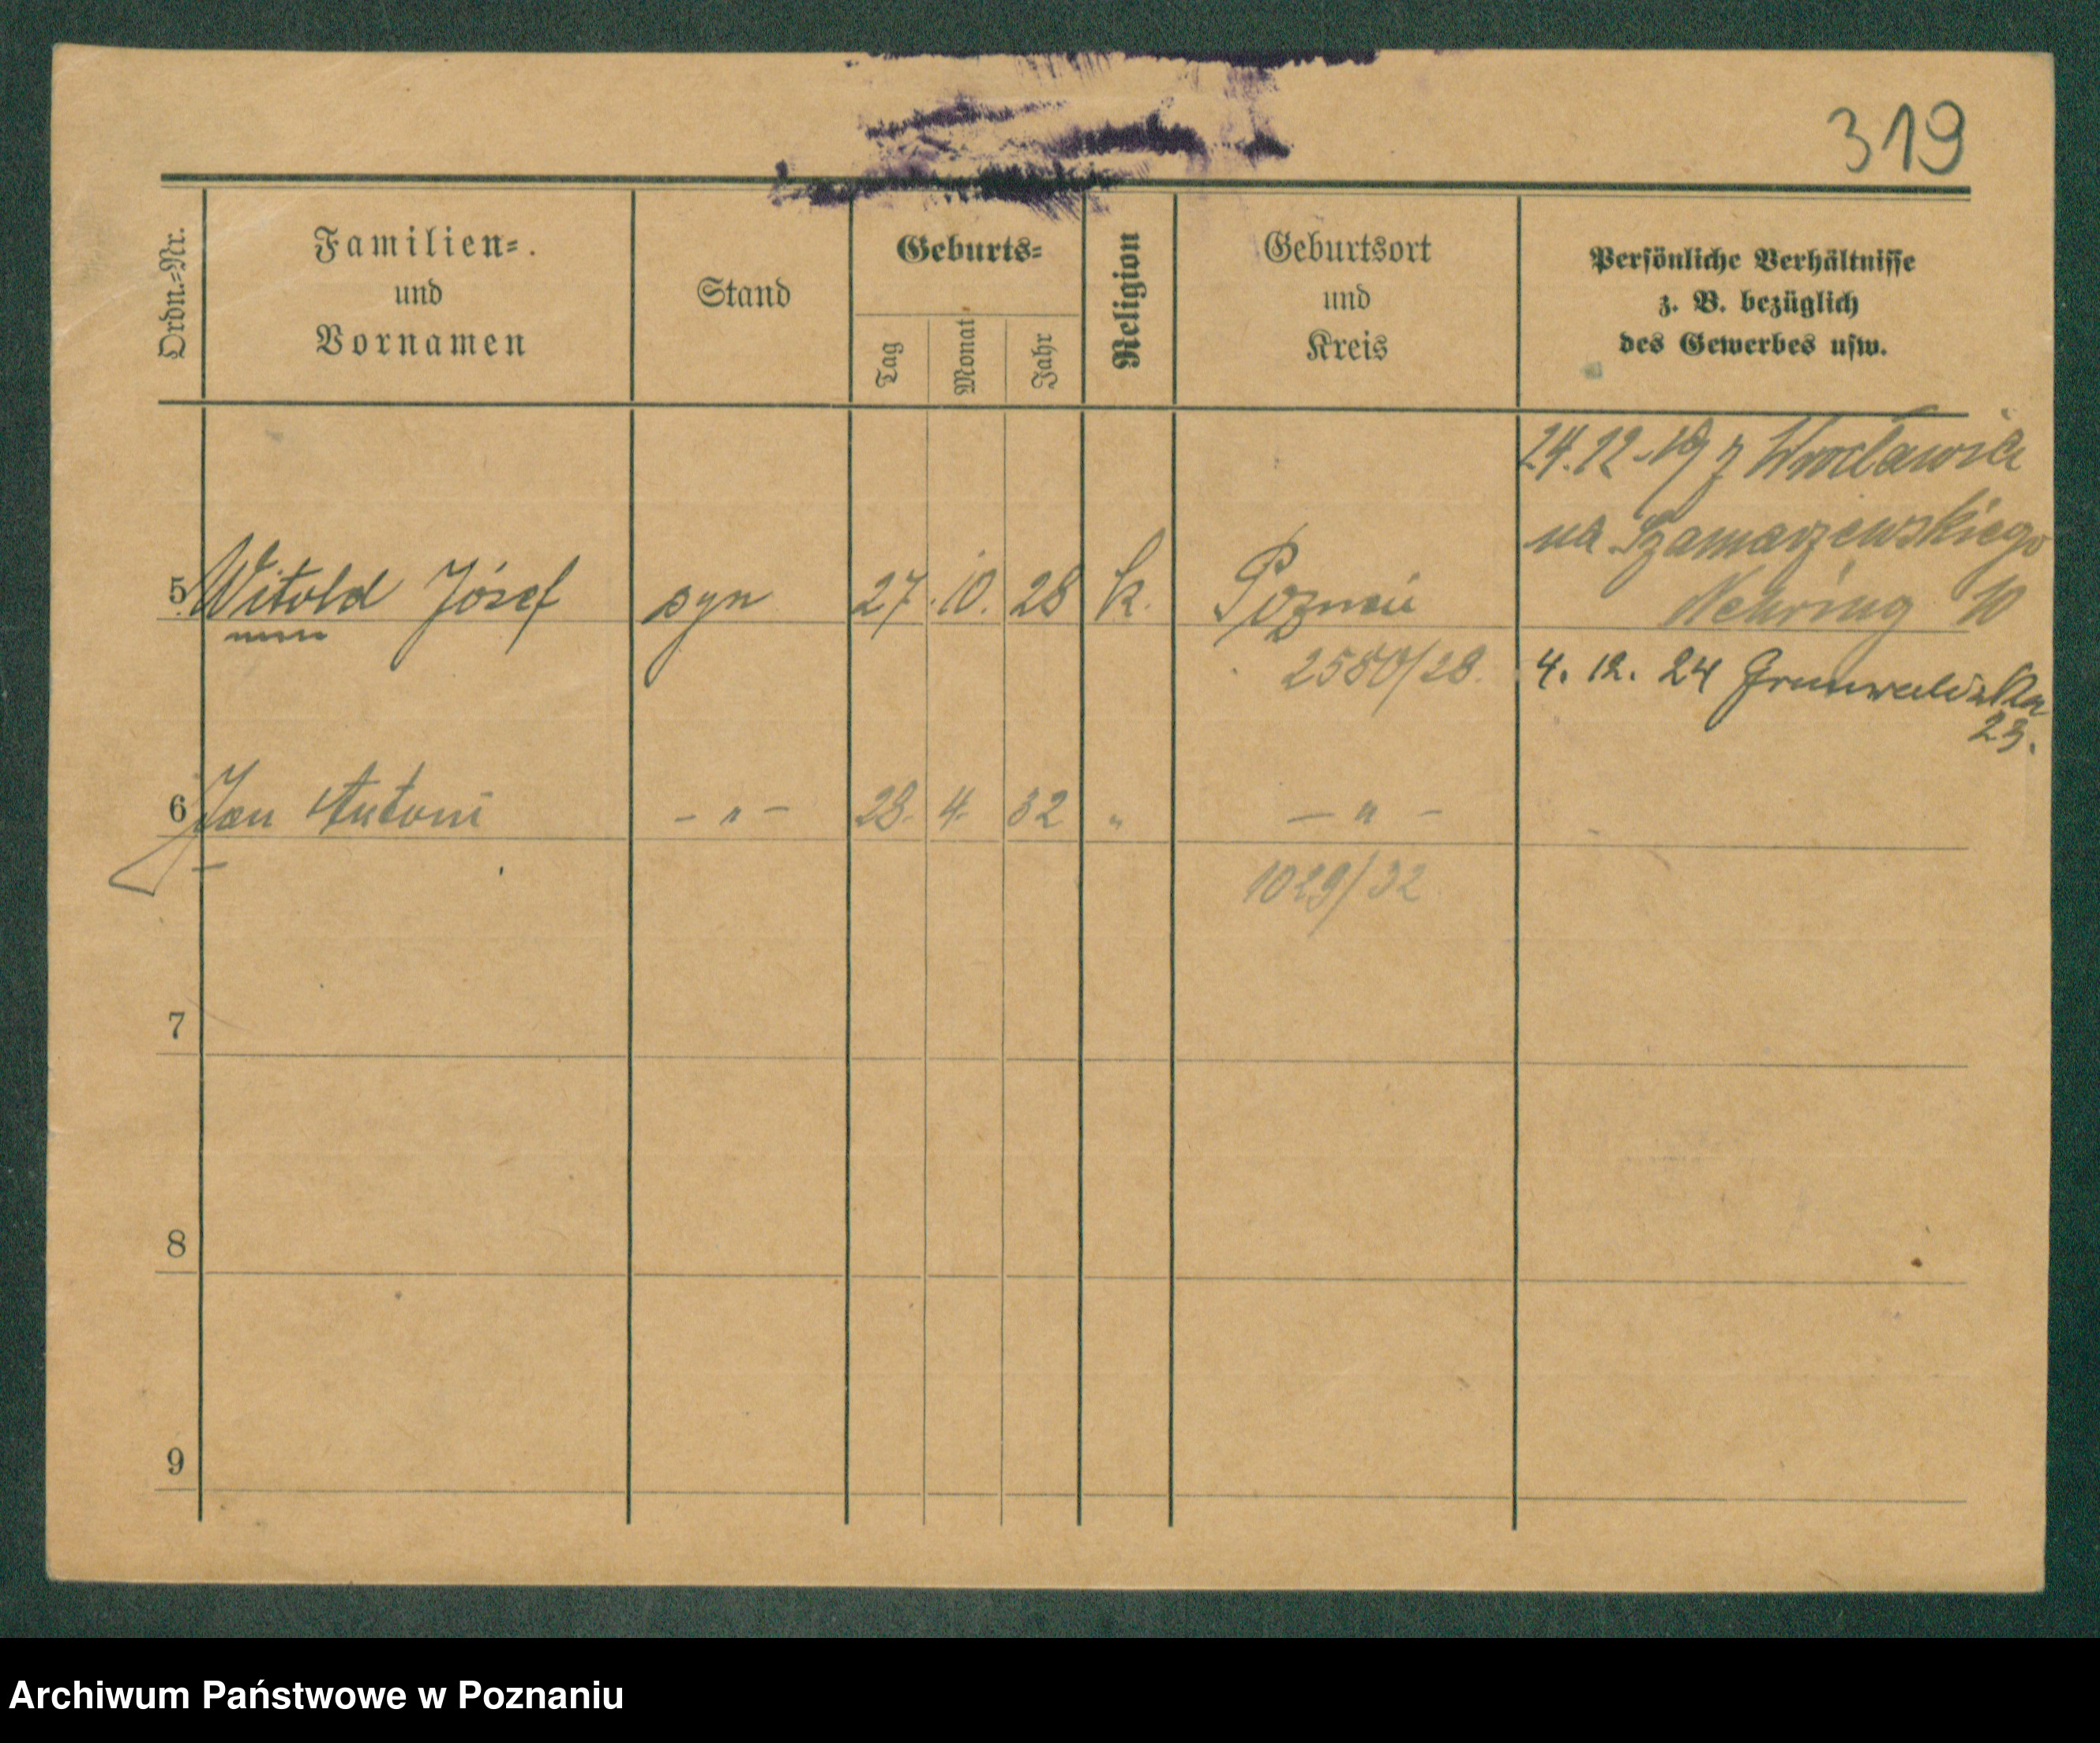 319
Ordn.=Nr.
Familien=
und
Vornamen
Stand
Geburts=
Tag
Monat
Jahr
Religion
Geburtsort
und
Kreis
Persönliche Verhältnisse
z. B. bezüglich
des Gewerbes usw.
24.12.19 z Wrocławia
na Szamarzewskiego
Nehring 10
5 Witold Józef syn 27. 10. 28 k. Poznań
2580/28. 4. 12. 24 Grunwaldzka
23.
6 Jan Antoni – " – 28. 4. 32 " – " –
1029/32
7
8
9
Archiwum Państwowe w Poznaniu